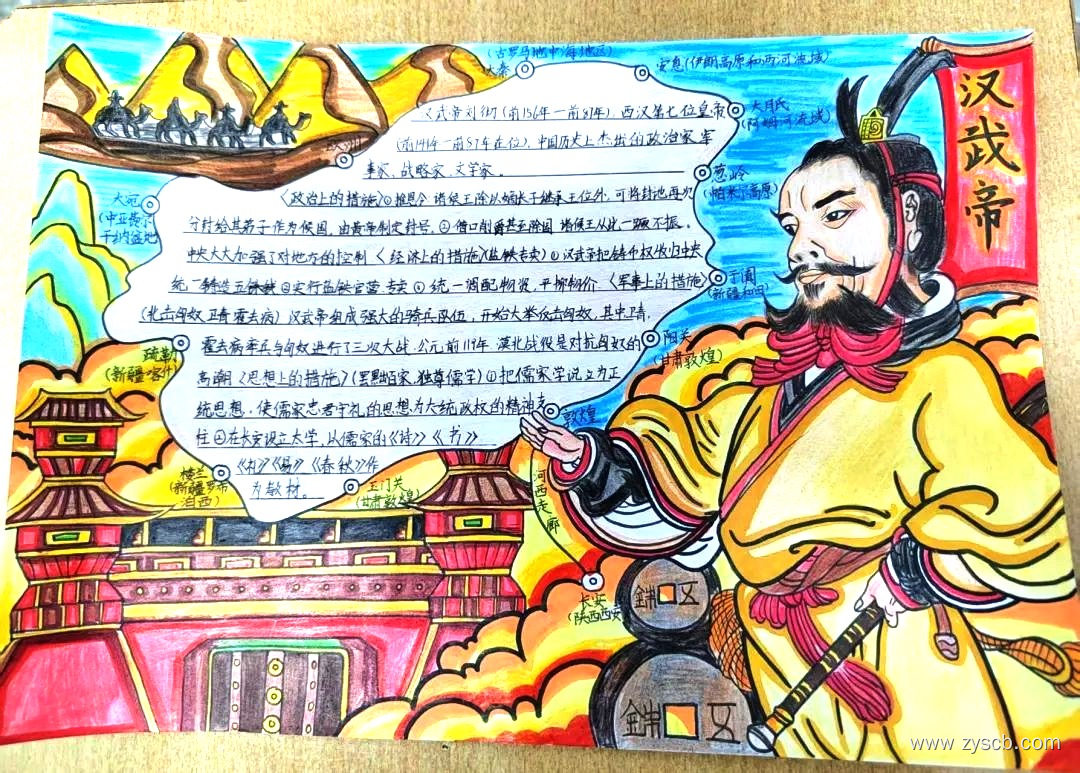 汉武帝
(古罗马地中海地区)
大秦
安息(伊朗高原和两河流域)
大月氏
(阿姆河流域)
葱岭
(帕米尔高原)
于阗
(新疆和田)
阳关
(甘肃敦煌)
敦煌
河西走廊
长安
(陕西西安)
玉门关
(甘肃敦煌)
楼兰
(新疆罗布
泊西)
疏勒
(新疆喀什)
大宛
(中亚费尔
干纳盆地)
欧洲
汉武帝刘彻(前156年一前87年),西汉第七位皇帝
(前141年一前87年在位),中国历史上杰出的政治家、军
事家、战略家、文学家。
《政治上的措施》①推恩令 诸侯王除以嫡长子继承王位外,可将封地再次
分封给其弟子作为侯国,由皇帝制定封号。②借口削爵甚至除国 诸侯王从此一蹶不振。
中央大大加强了对地方的控制《经济上的措施》(盐铁专卖)①汉武帝把铸币权收归中央
统一铸造五铢钱②实行盐铁官营、专卖③统一调配物资,平抑物价《军事上的措施》
(北击匈奴 卫青 霍去病)汉武帝组成强大的骑兵队伍,开始大举反击匈奴,其中卫青、
霍去病率兵与匈奴进行了三次大战,公元前119年,漠北战役是对抗匈奴的
高潮《思想上的措施》(罢黜百家,独尊儒学)①把儒家学说立为正
统思想,使儒家忠君守礼的思想为大统政权的精神支
柱②在长安设立太学,以儒家的《诗》《书》
《礼》《易》《春秋》作
为教材。
五
五
www.zyscb.com